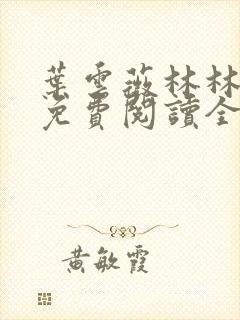 葉雲薇林林
免費閱讀全
黃敏霞